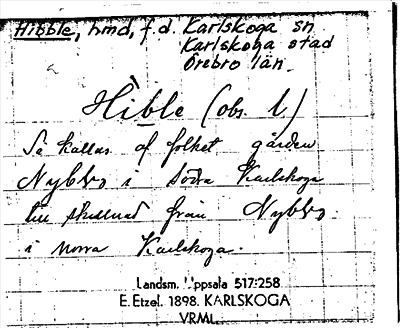 Hibble, hmd, f.d. Karlskoga sn
Karlskoga stad
Örebro län.
Hible (obs. l)
Så kallas af folket gården
Nyble i södra Karlskoga
till skillnad från Nyble
i norra Karlskoga.
Landsm. Uppsala 517:258
E. Etzel. 1898. KARLSKOGA
VRML.